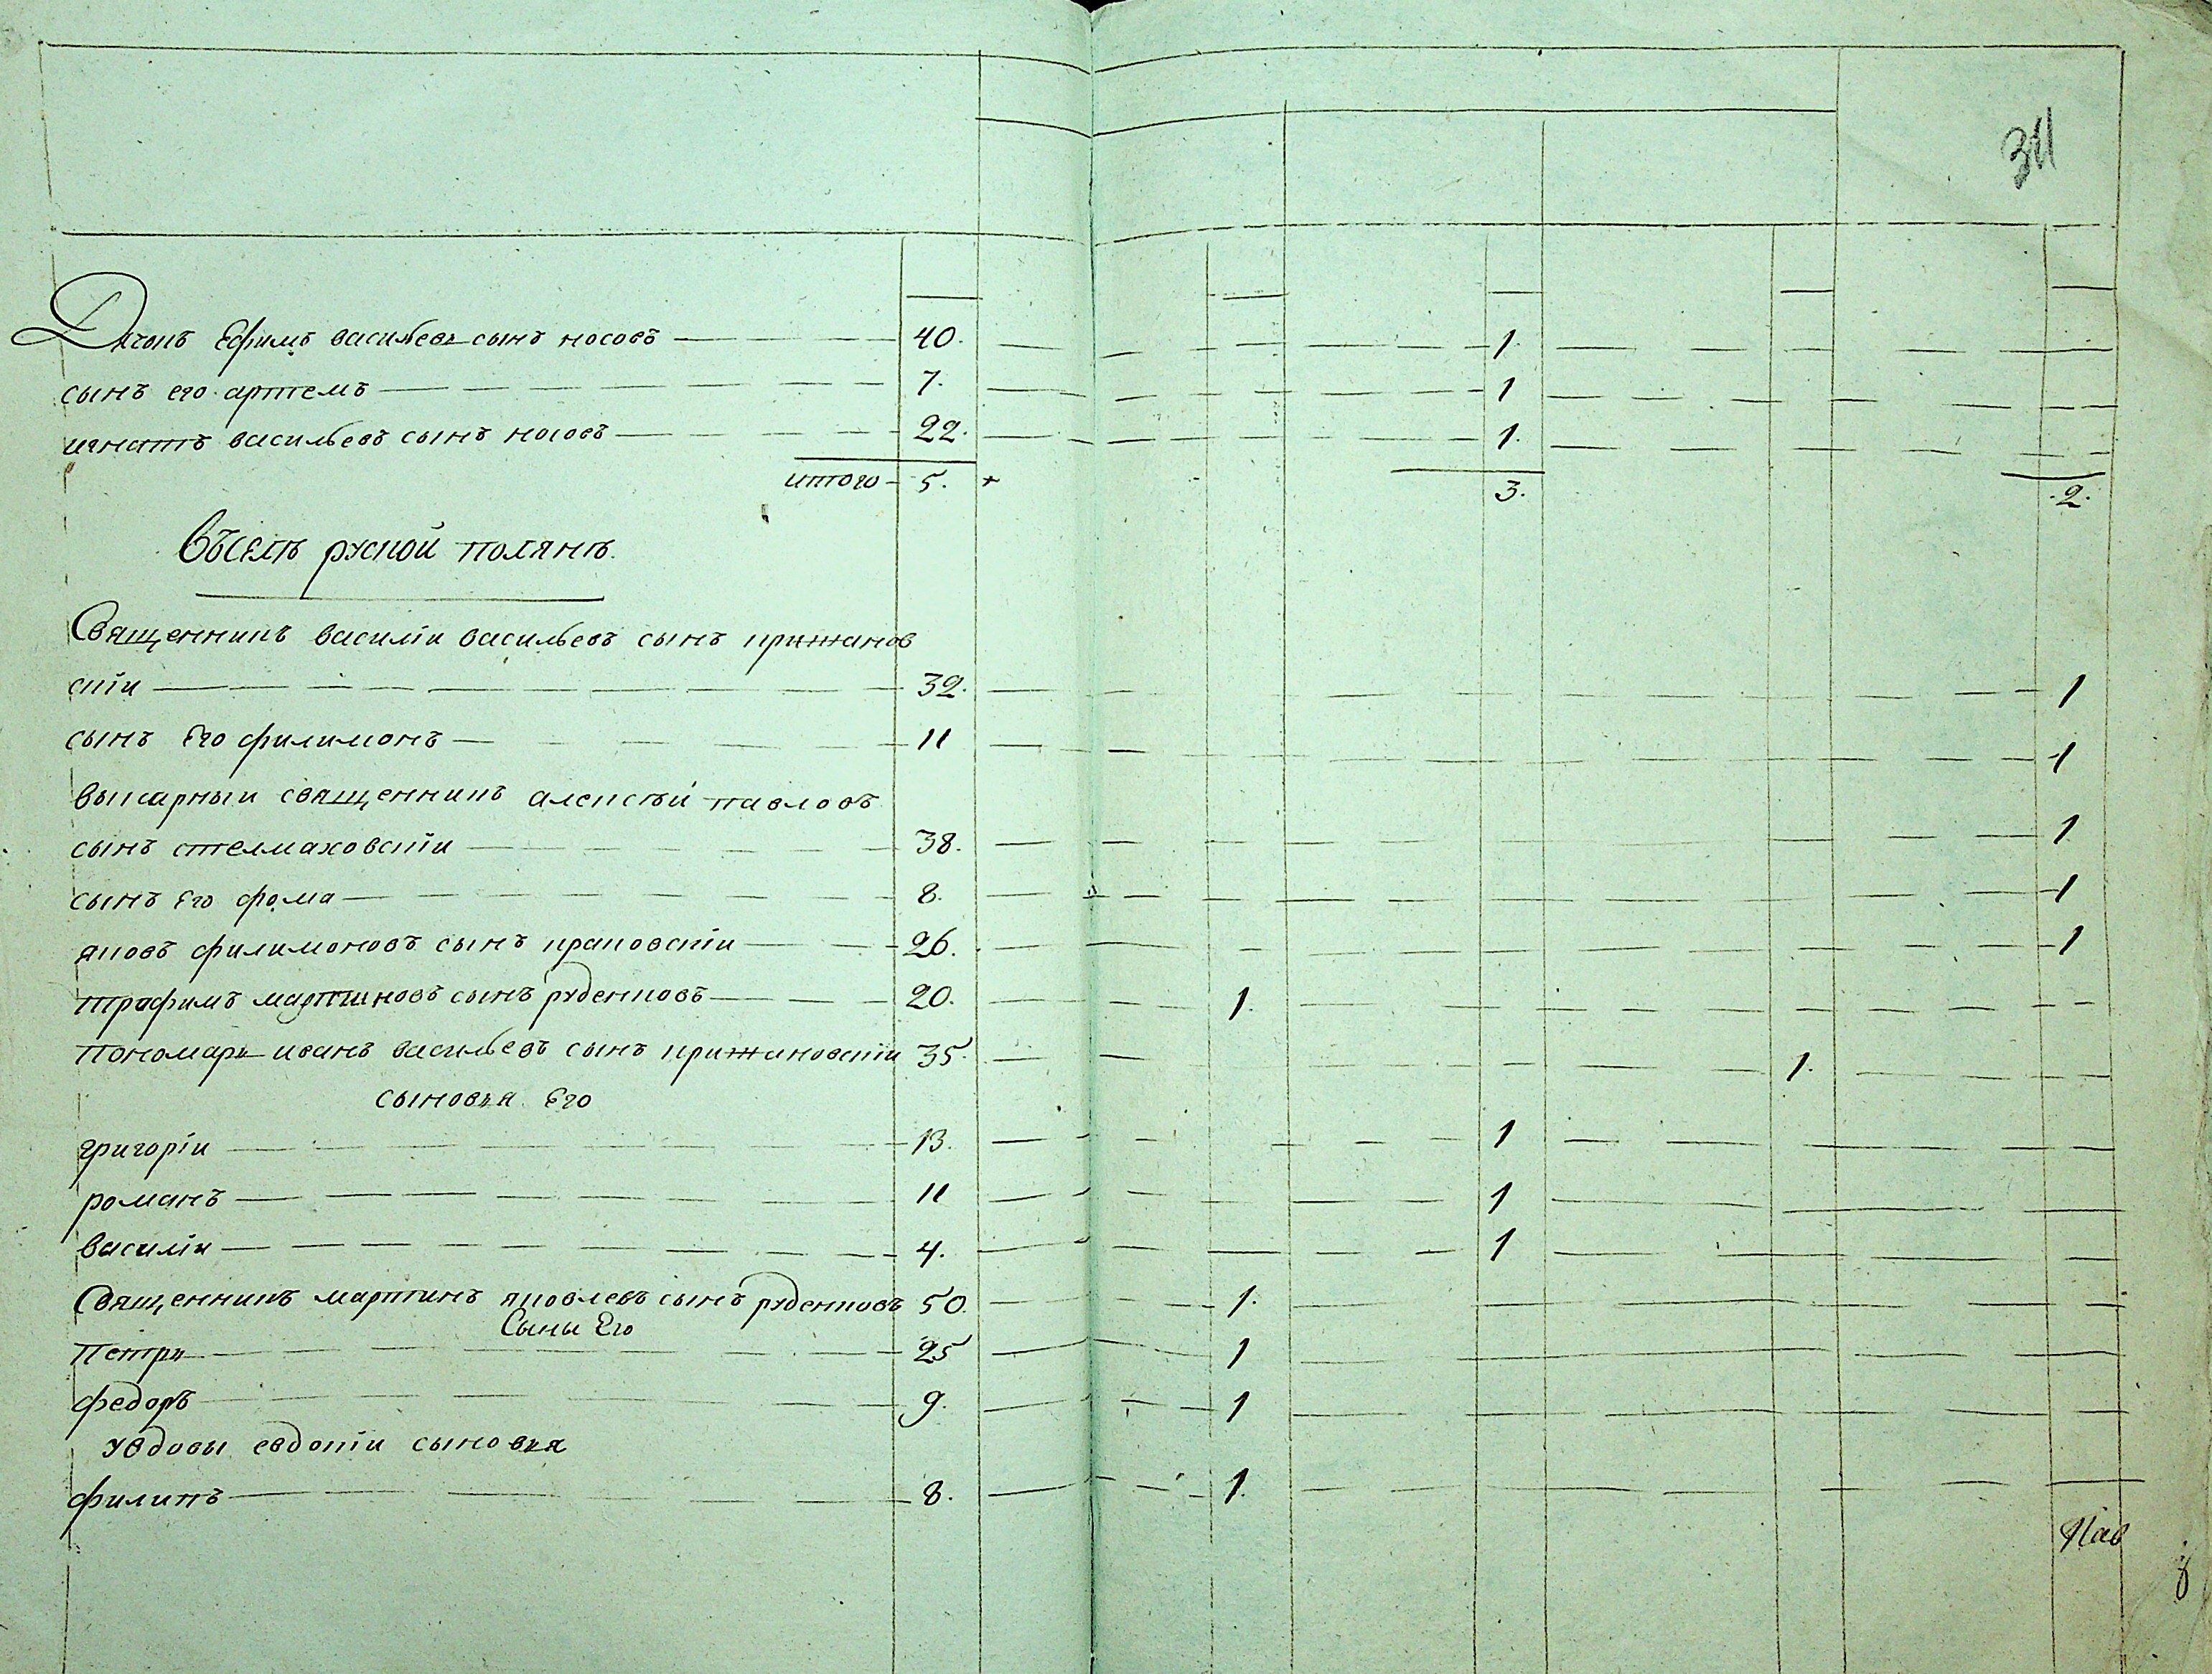 311
Дячокъ Ефимъ васильевъ сынъ носовъ 40. 1.
сынъ его артемъ 7. 1
игнатъ васильевъ сынъ носовъ 22. 1.
итого 5. 3. 2.
Въселѣ руской полянѣ.
Священникъ василіи васильевъ сынъ крижанов
скіи 32. 1
сынъ Его филимонъ 11 1
викарныи священникъ алексѣй павловъ
сынъ стелмаховскіи 38. 1
сынъ Его фома 8. 1
яковъ филимоновъ сынъ краковскіи 26. 1
трафимъ мартиновъ сынъ руденковъ 20. 1.
Пономарь иванъ васильевъ сынъ крижановскіи 35. 1.
сыновья Его
григоріи 13. 1
романъ 11 1
василіи 4. 1
Священникъ мартинъ яковлевъ сынъ руденковъ 50. 1.
Сыны Его
Петръ 25 1
федоръ 9. 1
Увдовы евдокіи сыновья
филипъ 8. 1.